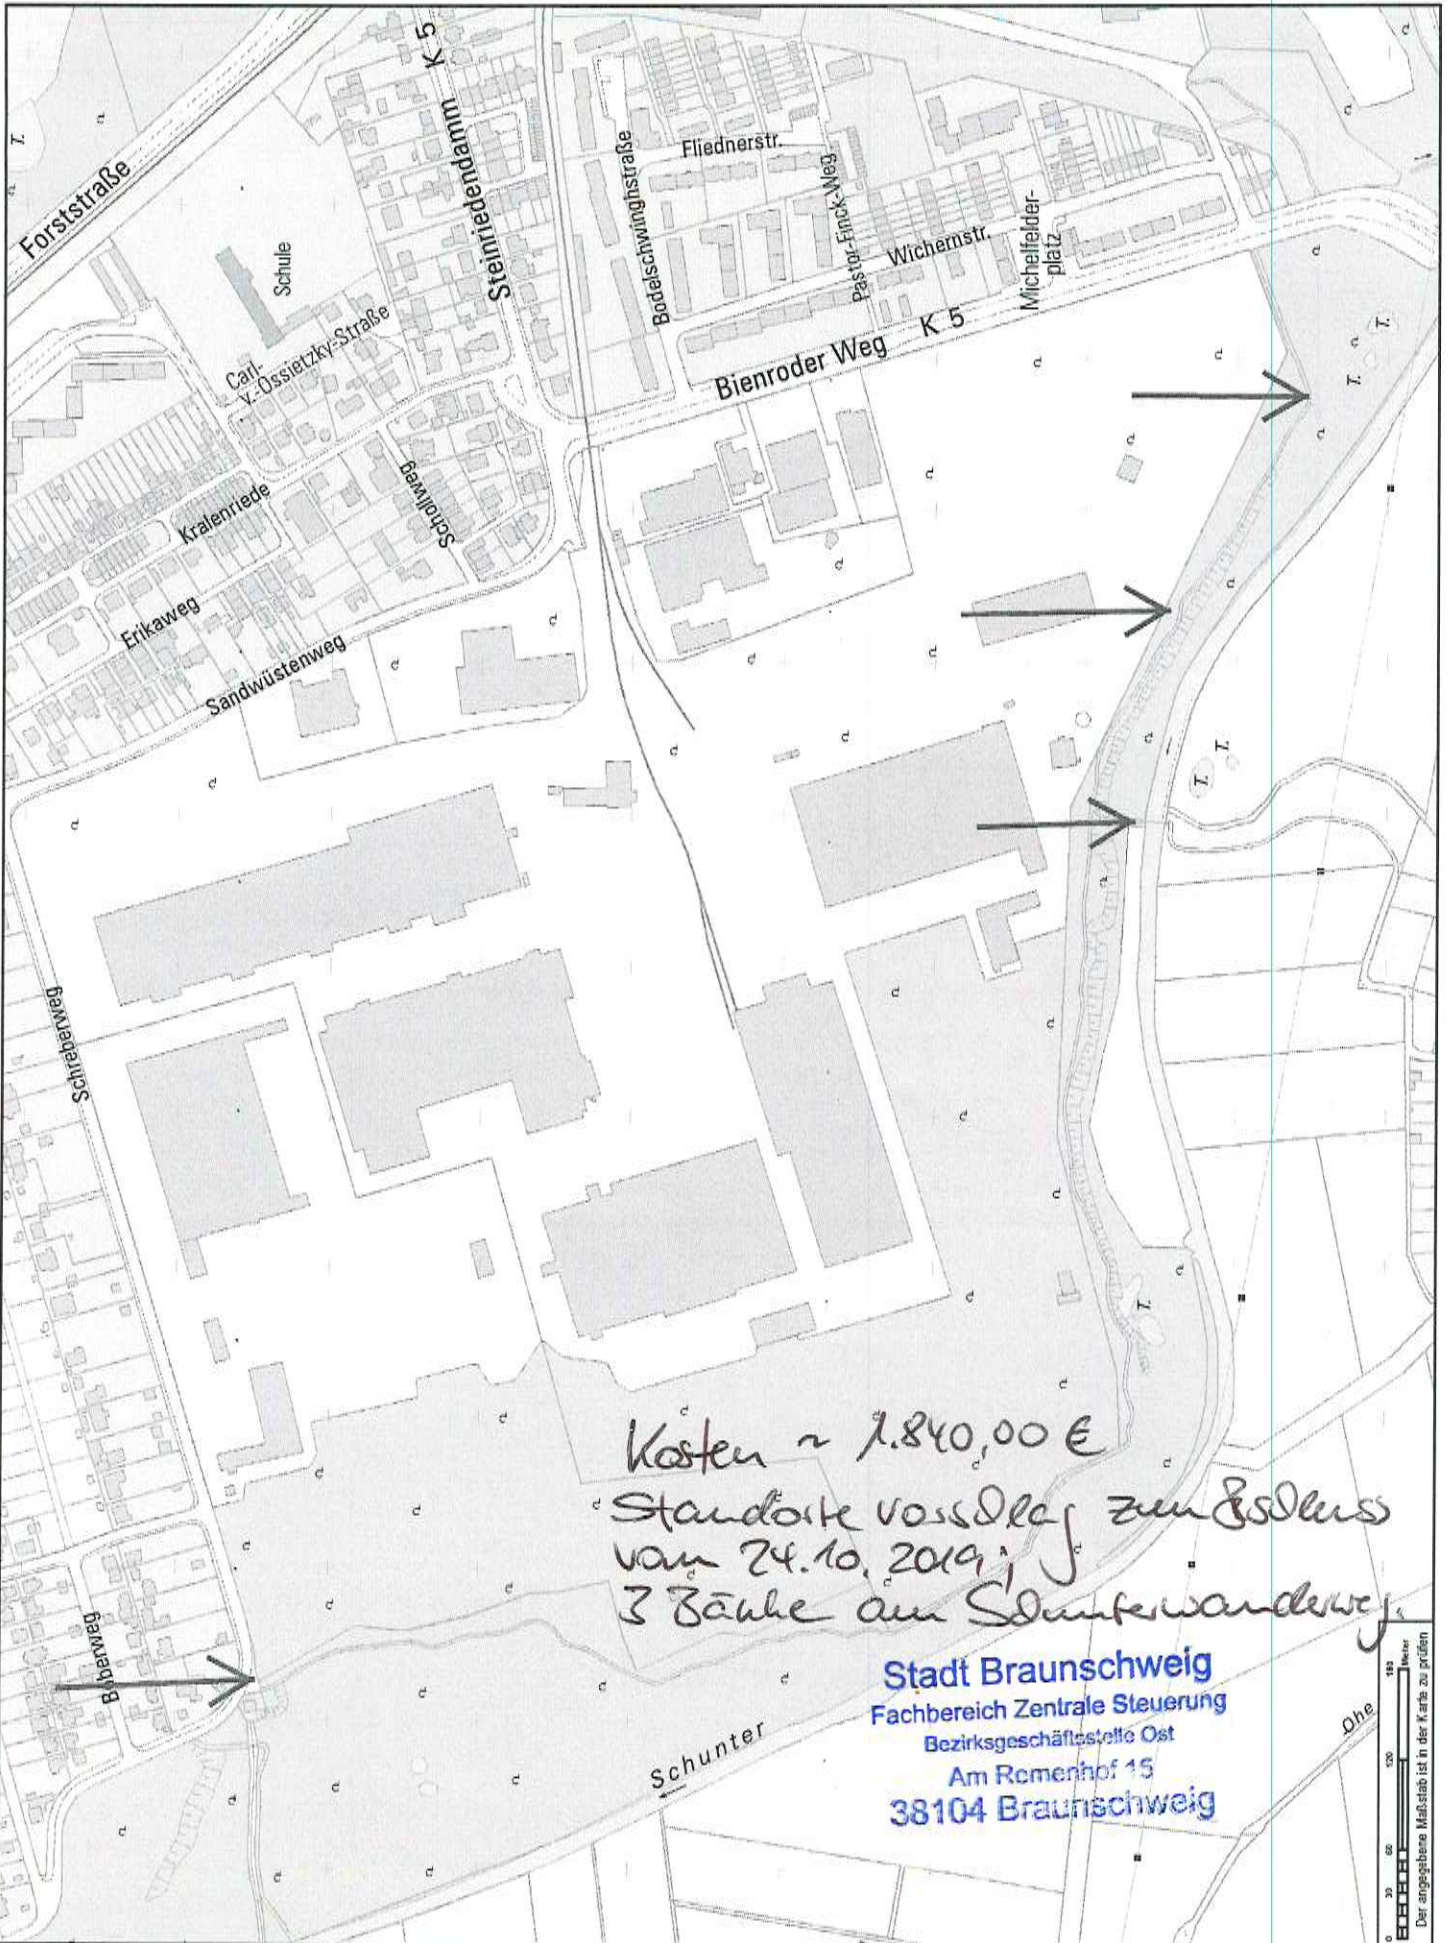 K 5
Forststraße
Steinriedendamm
Schule
Carl-
v.-Ossietzky-Straße
Fliednerstr.
Bodelschwinghstraße
Pastor-Finck-Weg
Wichernstr.
Michelfelder-
platz
Bienroder Weg
K 5
Kralenriede
Schollweg
Erikaweg
Sandwüstenweg
Schreberweg
Biberweg
Schunter
Ohe
T.
T.
T.
T.
T.
T.
Kosten ~ 1.840,00 €
Standorte vorschlag zum Beschluss
vom 24.10.2019;
3 Bänke am Schunterwanderweg.
Stadt Braunschweig
Fachbereich Zentrale Steuerung
Bezirksgeschäftsstelle Ost
Am Remenhof 15
38104 Braunschweig
0 30 60 120 180
Meter
Der angegebene Maßstab ist in der Karte zu prüfen